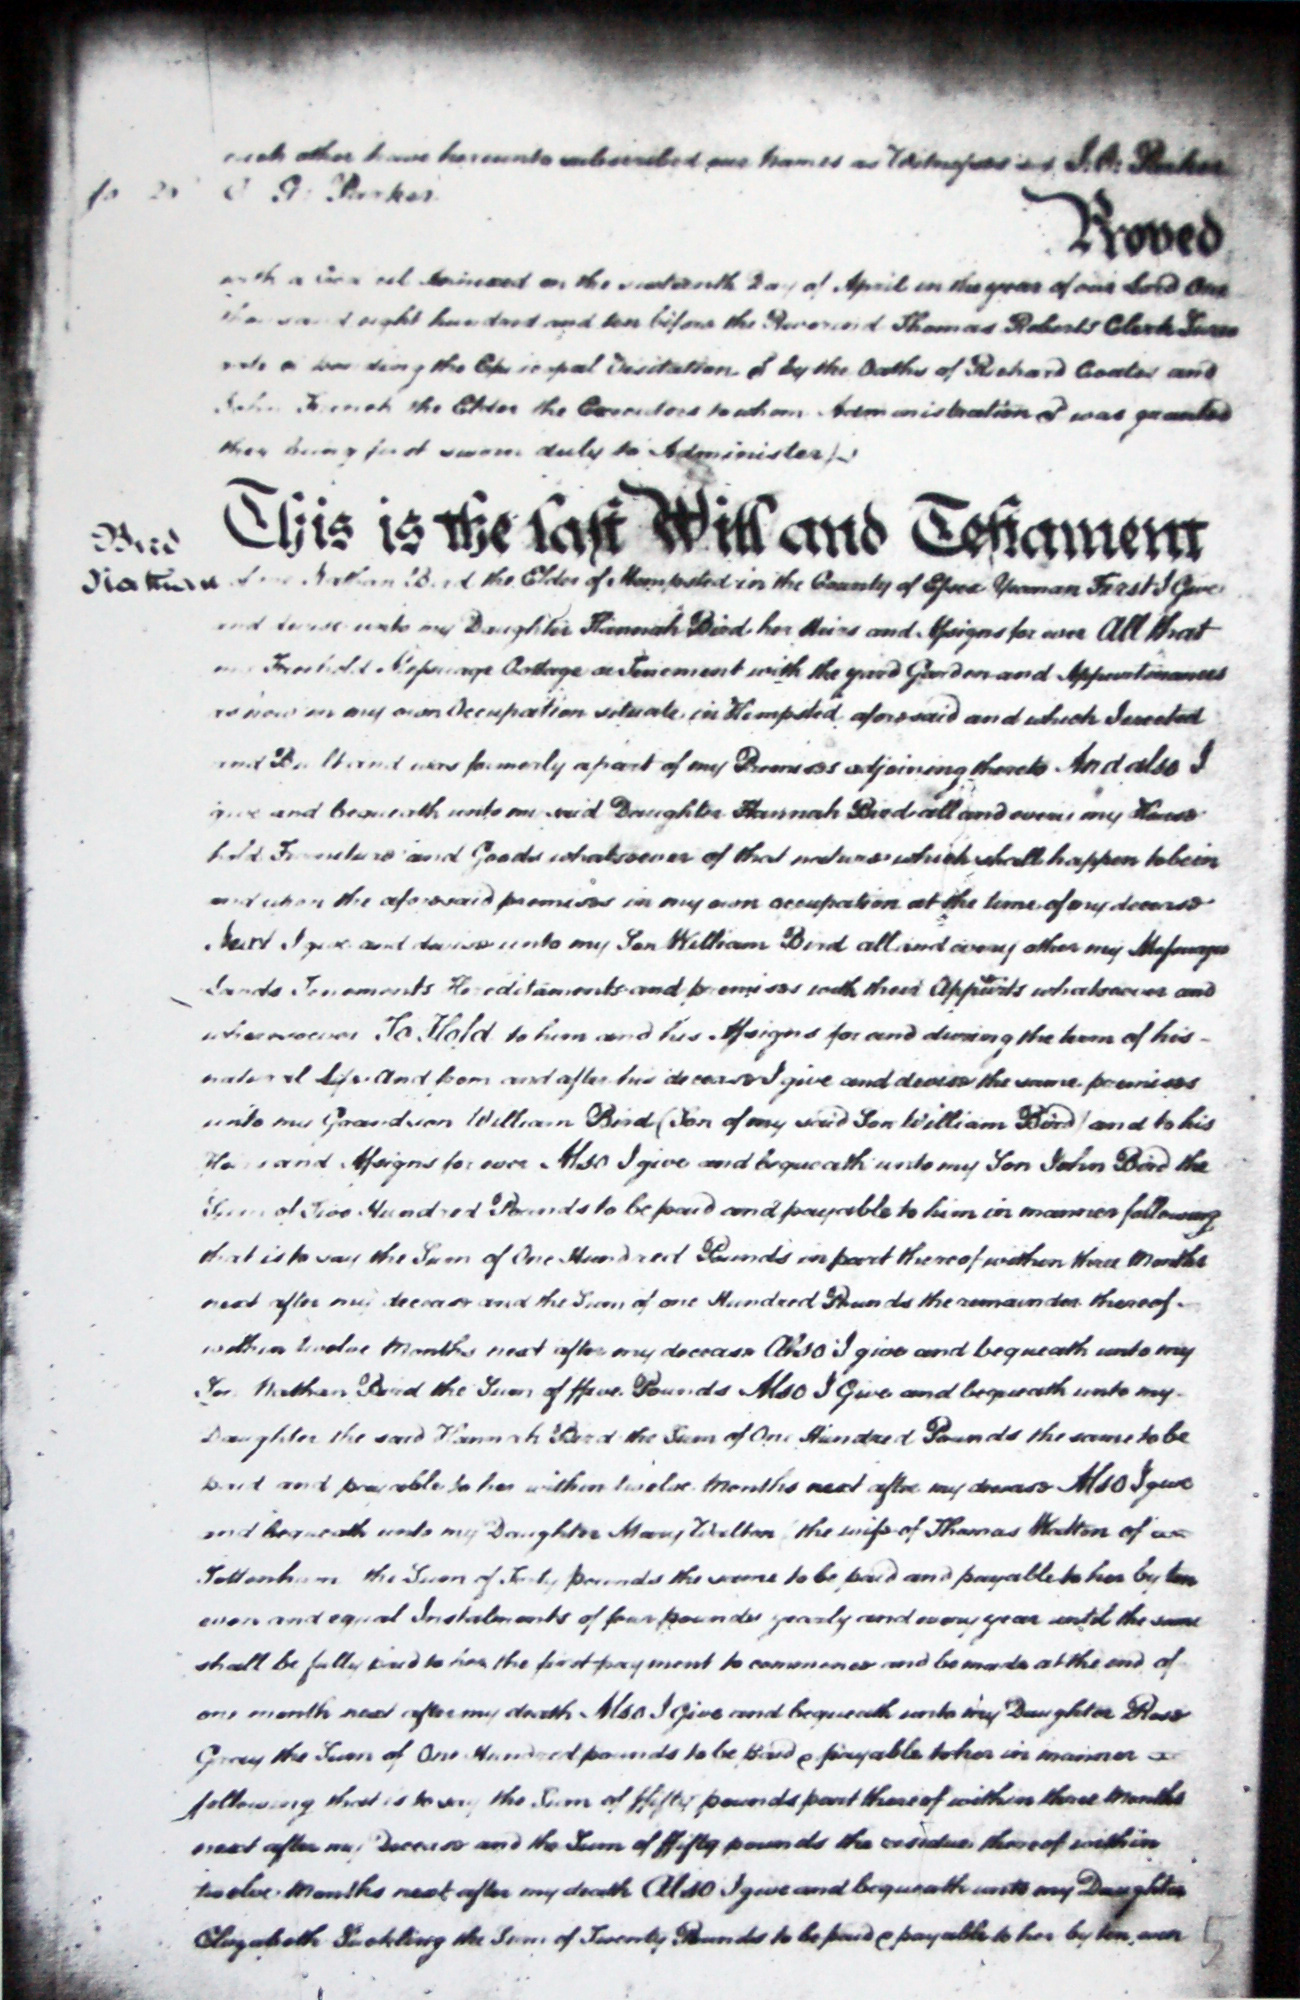 each other have hereunto subscribed our Names as Witnesses J. A. Parker
fo 20 C A: Parker
Proved
with a annexed on the sixteenth Day of April in the year of our Lord One
thousand eight hundred and ten before the Reverend Thomas Roberts Clerk Surro
gate the Episcopal Visitation &c by the Oaths of Richard Coates and
John French the Elder the Executors to whom Administration &c was granted
they being first sworn duly to Administer
Bird
Nathan
This is the last Will and Testament
of me Nathan Bird the Elder of Hempsted in the County of Essex Yeoman First I Give
and devise unto my Daughter Hannah Bird her Heirs and Assigns for ever All that
my Freehold Messuage Cottage or Tenement with the yard Garden and Appurtenances
as now in my own Occupation situate in Hempsted aforesaid and which I erected
and Built and was formerly a part of my Premises adjoining thereto And also I
give and bequeath unto my said Daughter Hannah Bird all and every my House
hold Furniture and Goods whatsoever of that nature which shall happen to be in
and upon the aforesaid premises in my own occupation at the time of my decease
Next I give and devise unto my Son William Bird all and every other my Messuages
Lands Tenements Hereditaments and premises with their Appurts whatsoever and
wheresoever To Hold to him and his Assigns for and during the term of his -
natural Life And from and after his decease I give and devise the same premises
unto my Grandson William Bird (Son of my said Son William Bird) and to his
Heirs and Assigns for ever Also I give and bequeath unto my Son John Bird the
Sum of Two Hundred Pounds to be paid and payable to him in manner following
that is to say the Sum of One Hundred Pounds in part thereof within three Months
next after my decease and the Sum of one Hundred Pounds the remainder thereof -
within twelve Months next after my decease Also I give and bequeath unto my
Son Nathan Bird the Sum of ffive Pounds Also I Give and bequeath unto my -
Daughter the said Hannah Bird the Sum of One Hundred Pounds the same to be
paid and payable to her within twelve Months next after my decease Also I give
and bequeath unto my Daughter Mary Walton the wife of Thomas Walton of
Tottenham the Sum of Forty pounds the same to be paid and payable to her by ten
even and equal Instalments of four pounds yearly and every year until the same
shall be fully paid to her the first payment to commence and be made at the end of
one month next after my death Also I Give and bequeath unto my Daughter Rose
Gray the Sum of One Hundred pounds to be paid & payable to her in manner
following that is to say the Sum of ffifty pounds part thereof within three Months
next after my Decease and the Sum of ffifty pounds the residue thereof within
twelve Months next after my death Also I give and bequeath unto my Daughter
Elizabeth Suckling the Sum of Twenty Pounds to be paid & payable to her by ten even
5